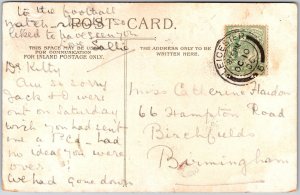 to the football
match. should so
liked to have seen you
Callie
POST CARD.
THIS SPACE MAY BE USED
FOR COMMUNICATION
FOR INLAND POSTAGE ONLY.
THE ADDRESS ONLY TO BE
WRITTEN HERE.
LEICESTER
Dr Kitty
Am so sorry
Jack & I were
out on Saturday
wish you had sent
me a P.C. had
no idea you were
over
We had gone down
Miss Catherine Haidon
66 Hampton Road
Birchfields
Barmingham